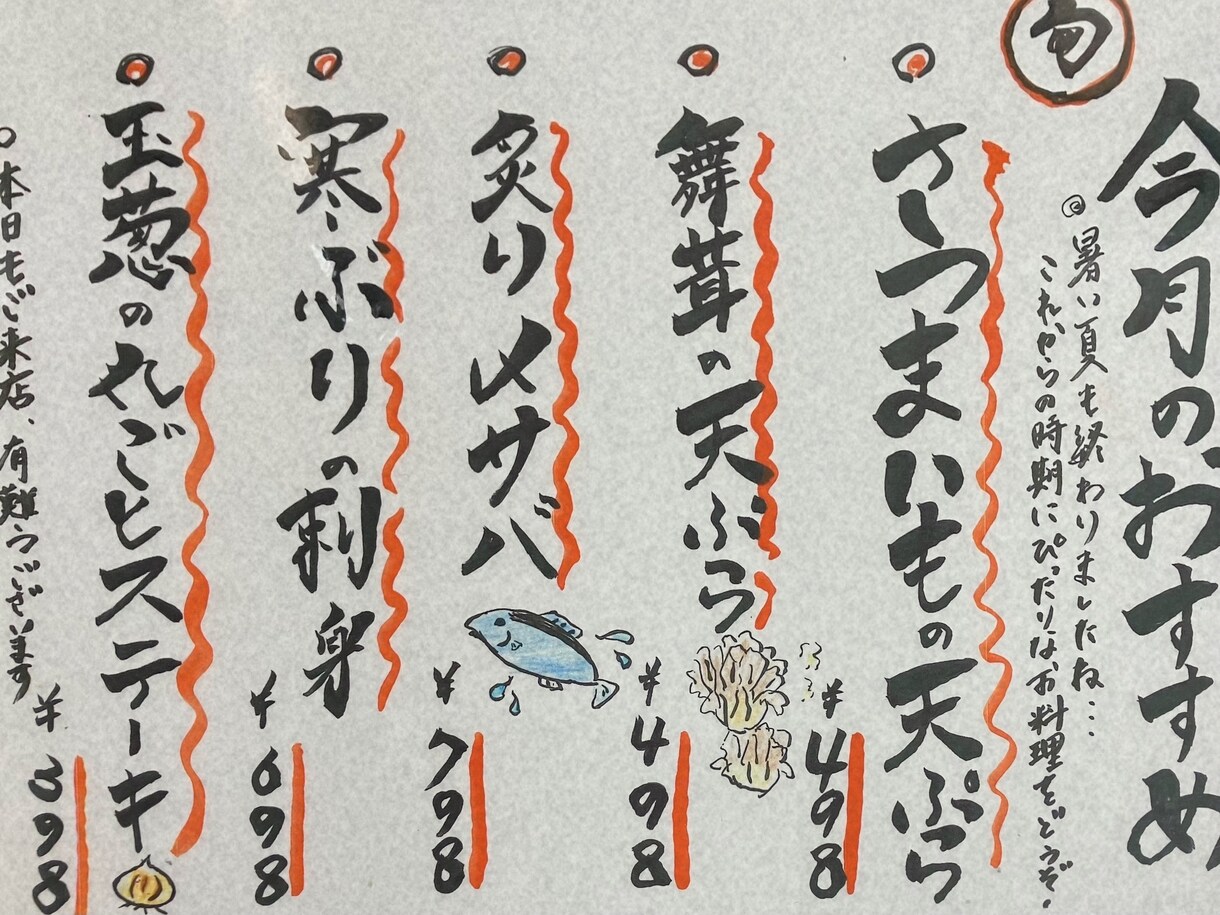 旬
今月のおすすめ
◎暑い夏も終わりましたね…
これからの時期にぴったりなお料理をどうぞ。
さつまいもの天ぷら
¥498
舞茸の天ぷら
¥498
炙り〆サバ
¥798
寒ぶりの刺身
¥698
玉葱のれごとステーキ
¥398
○本日もご来店、有難うございます